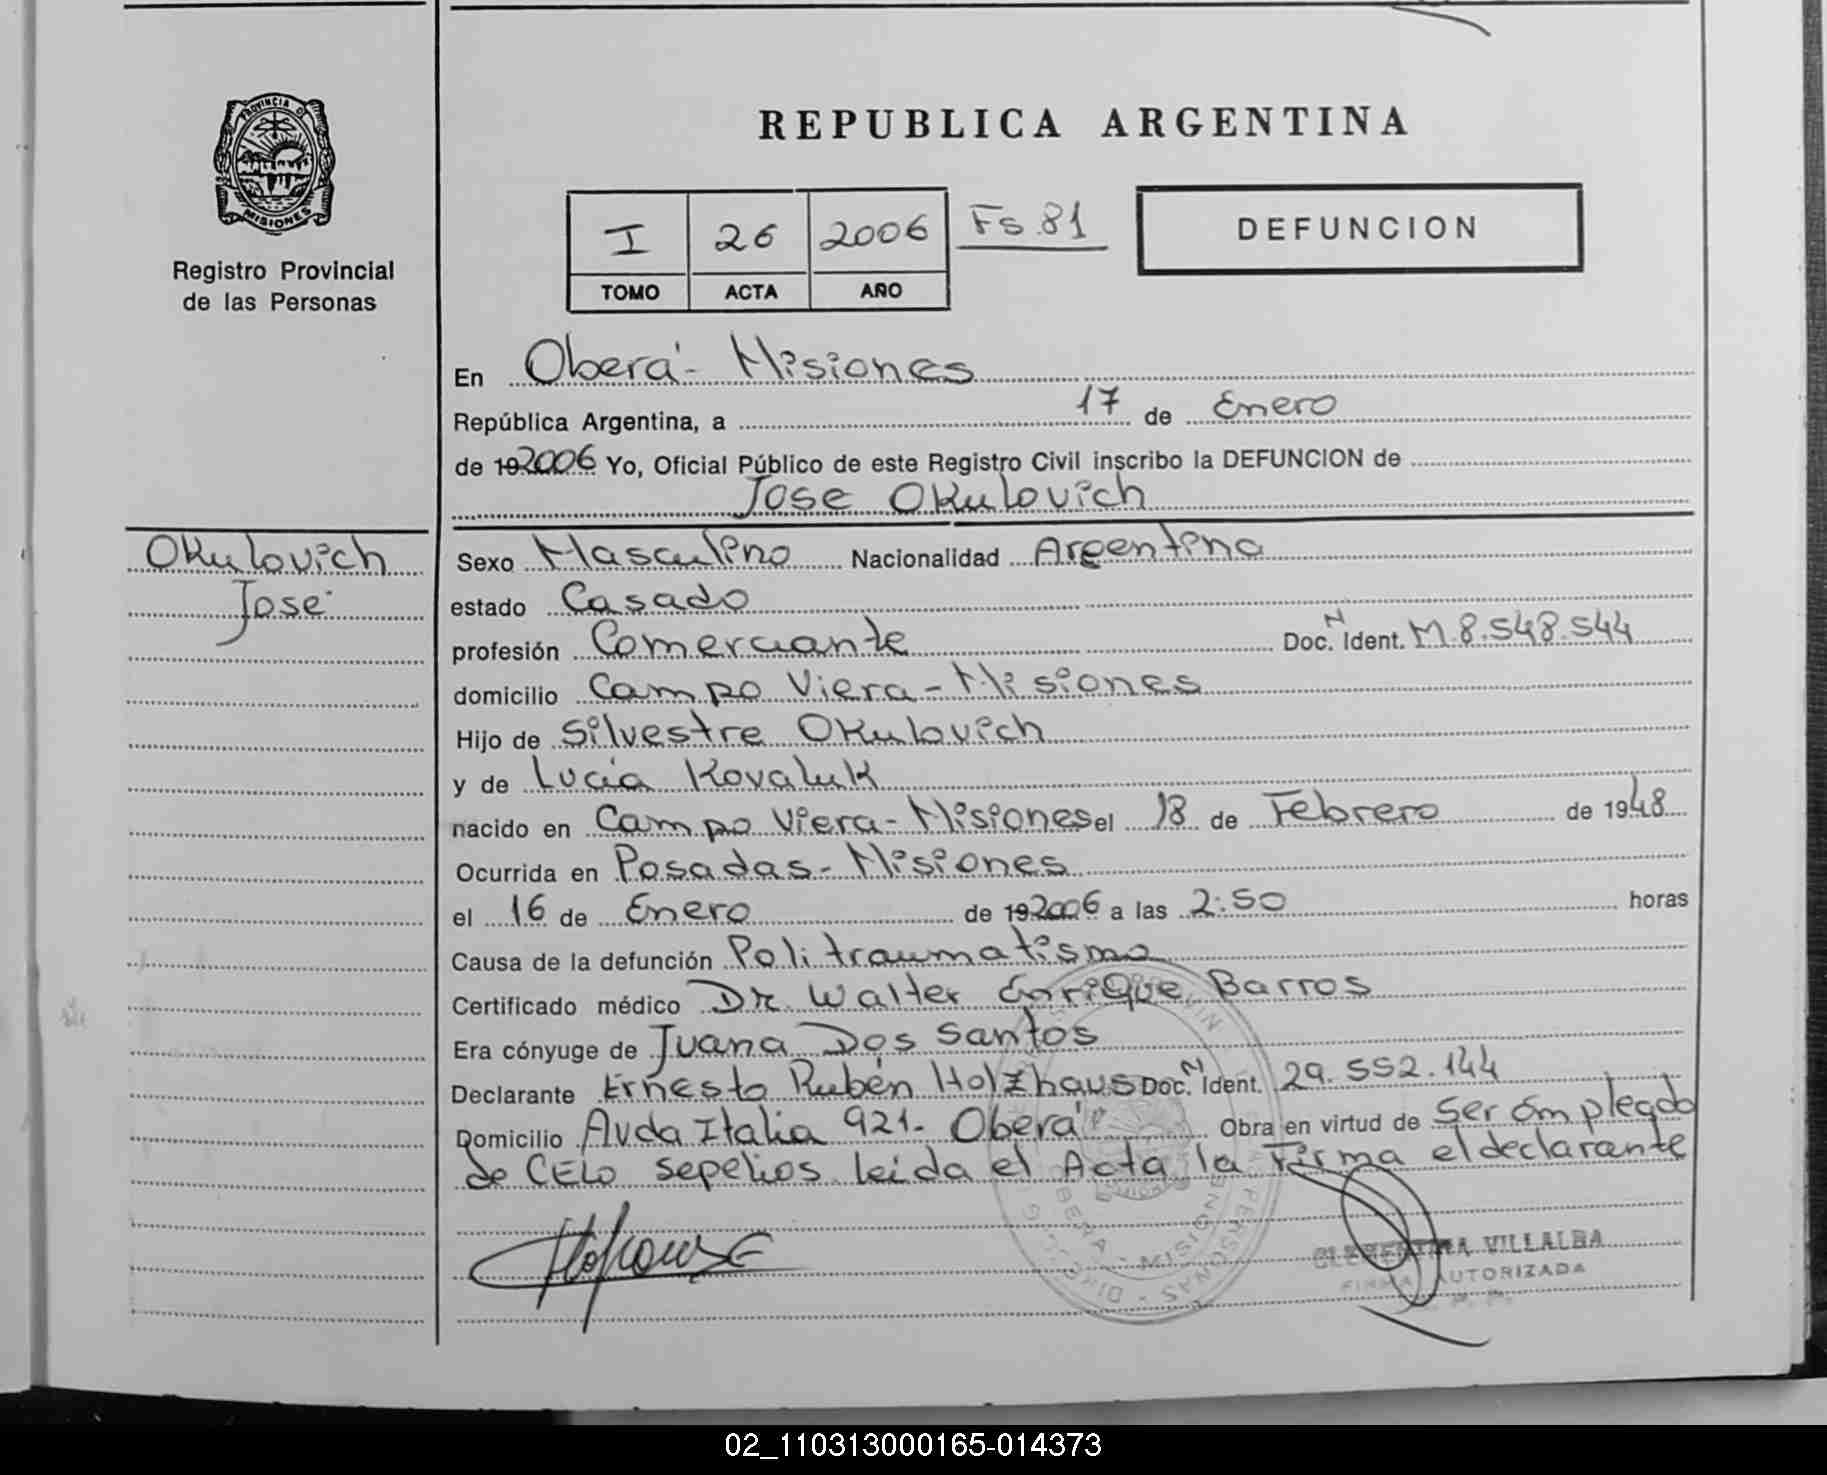 PROVINCIA D
MISIONES
Registro Provincial
de las Personas
REPUBLICA ARGENTINA
I 26 2006 Fs.81
TOMO ACTA AÑO
DEFUNCION
En Oberá - Misiones
República Argentina, a 17 de Enero
de 192006 Yo, Oficial Público de este Registro Civil inscribo la DEFUNCION de
Jose Okulovich
Okulovich
José
Sexo Masculino Nacionalidad Argentina
estado Casado
profesión Comerciante Doc. N Ident. M.8.548.544
domicilio Campo Viera - Misiones
Hijo de Silvestre Okulovich
y de Lucía Kovaluk
nacido en Campo Viera - Misiones el 18 de Febrero de 1948
Ocurrida en Posadas - Misiones
el 16 de Enero de 192006 a las 2:50 horas
Causa de la defunción Politraumatismo
Certificado médico Dr. Walter Enrique Barros
Era cónyuge de Juana Dos Santos
Declarante Ernesto Rubén Holzhaus Doc. N Ident. 29.552.144
Domicilio Avda Italia 921. Oberá Obra en virtud de Ser Empleado
de CELO sepelios leida el Acta la Firma el declarante
CLEMENTINA VILLALBA
FIRMA AUTORIZADA
02_110313000165-014373